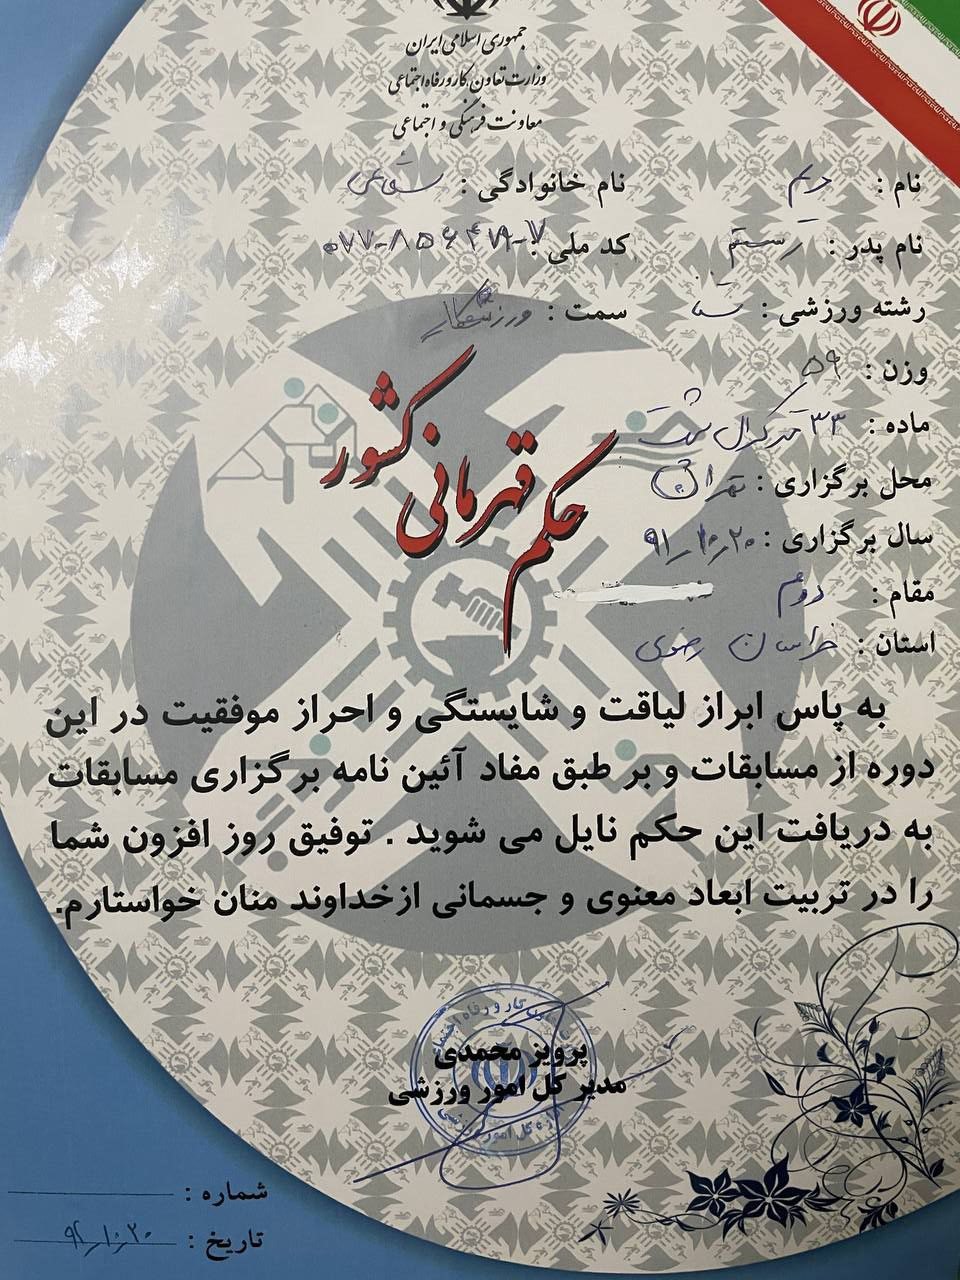 جمهوری اسلامی ایران
وزارت تعاون کار و رفاه اجتماعی
معاونت فرهنگی و اجتماعی
نام : مریم نام خانوادگی :
نام پدر : رستم کد ملی :
رشته ورزشی : شنا سمت : ورزشکار
وزن : ۵۹
ماده : ۳۳ متر کرال پشت
محل برگزاری : تهران
سال برگزاری : ۹۱/۱۰/۲۰
مقام : دوم
استان : خراسان رضوی
حکم قهرمانی کشور
به پاس ابراز لیاقت و شایستگی و احراز موفقیت در این
دوره از مسابقات و بر طبق مفاد آئین نامه برگزاری مسابقات
به دریافت این حکم نایل می شوید . توفیق روز افزون شما
را در تربیت ابعاد معنوی و جسمانی ازخداوند منان خواستارم.
پرویز محمدی
مدیر کل امور ورزشی
شماره :
تاریخ :